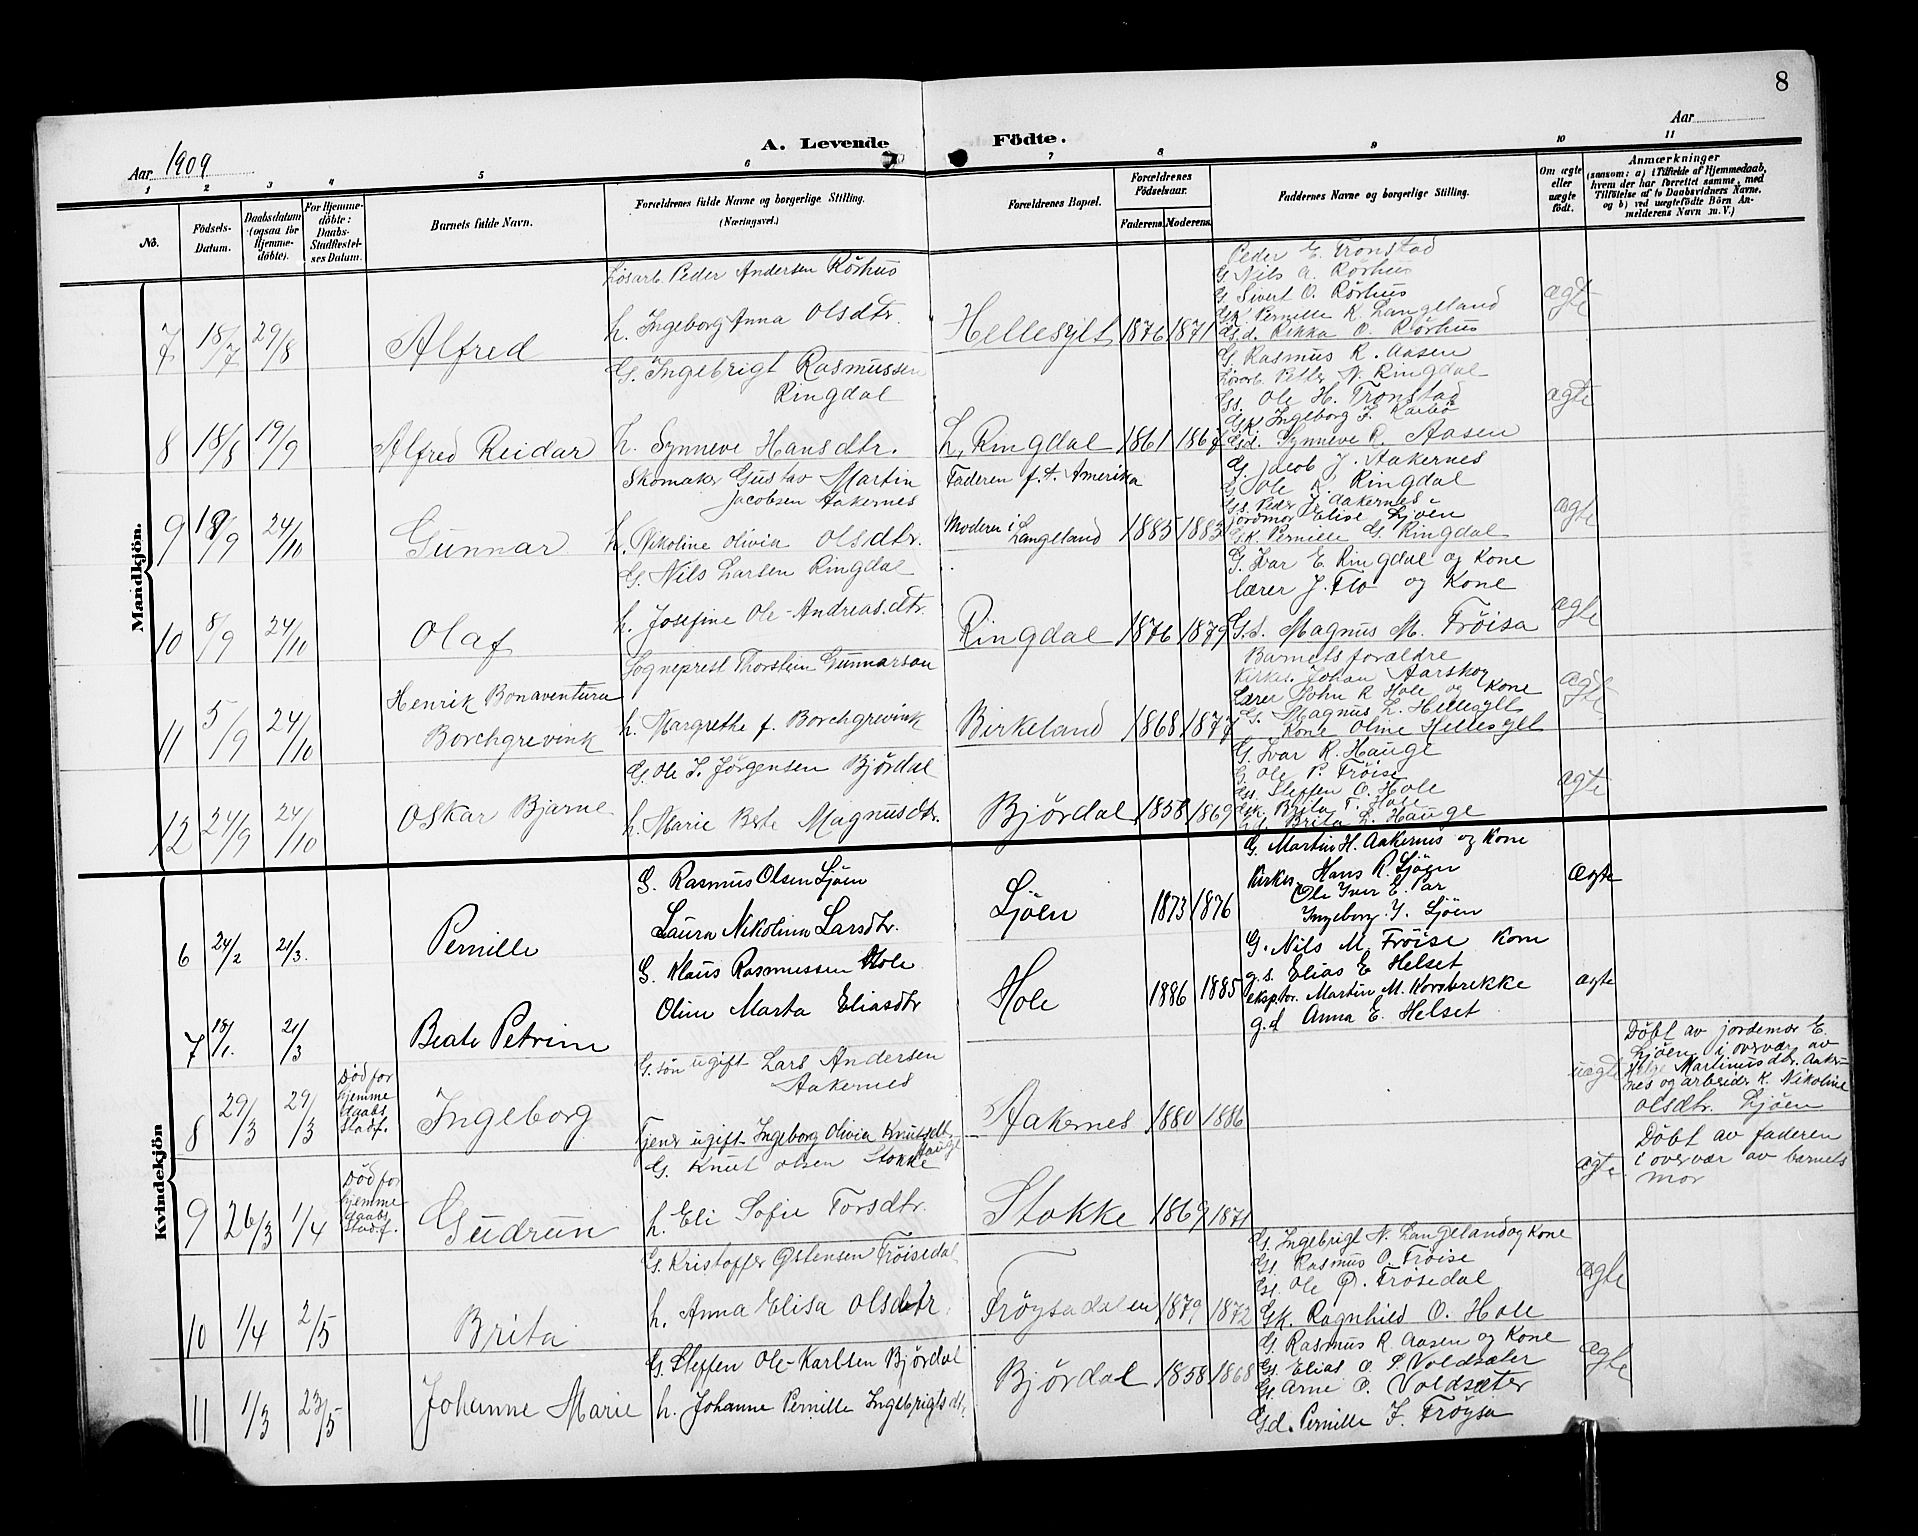 8
Aar 1909
A. Levende
Födte.
Aar
1 2 3 4 5 6 7 8 9 10 11
No.
Födsels-Datum.
Daabsdatum (ogsaa for Hjemme-döbte).
For Hjemme-döbte: Daabs-Stadfæstel-ses Datum.
Barnets fulde Navn.
Forældrenes fulde Navne og borgerlige Stilling.
(Næringsvei.)
Forældrenes Bopæl.
Forældrenes Födselsaar.
Faderens. Moderens.
Faddernes Navne og borgerlige Stilling.
Om ægte eller uægte födt.
Anmærkninger
(saasom: a) i Tilfælde af Hjemmedaab,
hvem der har forrettet samme, med
Tilföielse af to Daabsvidners Navne.
og b) ved uægtefödte Börn An-
melderens Navn m. V.)
Mandkjön.
7 18/7 29/8 Alfred
Løsarb. Peder Andersen Rörhus
h. Ingeborg Anna Olsdtr.
Hellesylt 1876 1871
Peder E. Tronstad
G. Nils A. Rörhus
G. Sivert O. Rörhus
Gk. Pernille K. Langeland
Gd. Rikka O. Rörhus
ægte
8 18/8 19/9 Alfred Reidar
G. Ingebrigt Rasmussen
Ringdal
h. Synneve Hansdtr.
L. Ringdal 1861 1867
G. Rasmus R. Aasen
Løsarb. Petter N. Ringdal
Gs. Ole H. Tronstad
Gk. Ingeborg J. Karbö
Gd. Synneve R. Aasen
ægte
9 18/9 24/10 Gunnar
Skomaker Gustav Martin
Jacobsen Aakernes
h. Nikoline Olivia Olsdtr.
Faderen f.t. Amerika
Moderen i Langeland 1885 1883
G. Jacob J. Aakernes
G. Ole L. Ringdal
Gs. Peder J. Aakernes
Jordmor Elise Ljöen
Gk. Pernille G. Ringdal
ægte
10 8/9 24/10 Olaf
G. Nils Larsen Ringdal
h. Josefine Ole-Andreas.dtr.
Ringdal 1876 1879
G. Ivar E. Ringdal og Kone
lærer J. Flo og Kone
G.s. Magnus M. Fröisa
ægte
11 5/9 24/10 Henrik Bonaventura
Borchgrevink
Sogneprest Thorstein Gunnarson
h. Margrethe f. Borchgrevink
Birkeland 1868 1877
Barnets forældre
Kirkes. Johan Aarskog
Lærer John R. Hole og Kone
G. Magnus L. Hellesylt
Kone Oline Hellesylt
ægte
12 24/9 24/10 Oskar Bjarne
G. Ole J. Jørgensen Björdal
h. Marie Berte Magnusdtr.
Björdal 1858 1869
G. Ivar R. Hauge
G. Ole P. Fröise
Gs. Steffen O. Hole
Gk. Brita T. Hole
Gd. Brita L. Hauge
ægte
Kvindekjön
6 24/2 21/3. Pernille
G. Rasmus Olsen Ljöen
Laura Nikolina Larsdtr.
Ljöen 1873 1876
G. Martin H. Aakernes og Kone
Kirkes. Hans R. Ljöen
Ole Iver E. Par
Ingeborg. J. Ljöen
ægte
7 18/1. 21/3 Beate Petrine
G. Klaus Rasmussen Hole
Oline Marta Eliasdtr
Hole 1886 1885
G. Nils M. Fröise Kone
g.s. Elias E Helset
eksptör. Martin M. Korsbrekke
g.d Anna E. Helset
ægte
8 29/3 29/3 Död for
hjemme
daabs
Stadf.
Ingeborg
G.sön ugift Lars Andersen
Aakernes
Tjener ugift Ingeborg Olivia Knutsdt.
Hauge
Aakernes 1880 1886
uægte
Döbt av jordemor E.
Ljöen i overvær av
Helge Martinusdtr. Aaker-
nes og arbeider K. Nikoline
Olsdtr. Ljöen
9 26/3 1/4 Död for
hjemme
daabs
Stadf.
Gudrun
G. Knut Olsen Stokke
h. Eli Sofie Torsdtr.
Stokke 1869 1871
ægte
Döbt av faderen
i overvær av barnets
mor
10 1/4 2/5 Brita
G. Kristoffer Östensen Fröisedal
h. Anna Elisa Olsdtr.
Fröysadalen 1879 1872
G. Ingebrigt N. Langeland og Kone
Gs. Rasmus O. Fröise
Gs. Ole Ø. Frosedal
Gk. Ragnhild O. Hole
ægte
11 1/3 23/5 Johanne Marie
G. Steffen Ole-Karlsen Björdal
h. Johanne Pernille Ingebrigtsdt.
Björdal 1858 1868
G. Rasmus R. Aasen og Kone
Gs. Elias O. P. Voldsæter
Gs. Arne O. Voldsæter
Gd. Pernille J. Fröysa
ægte